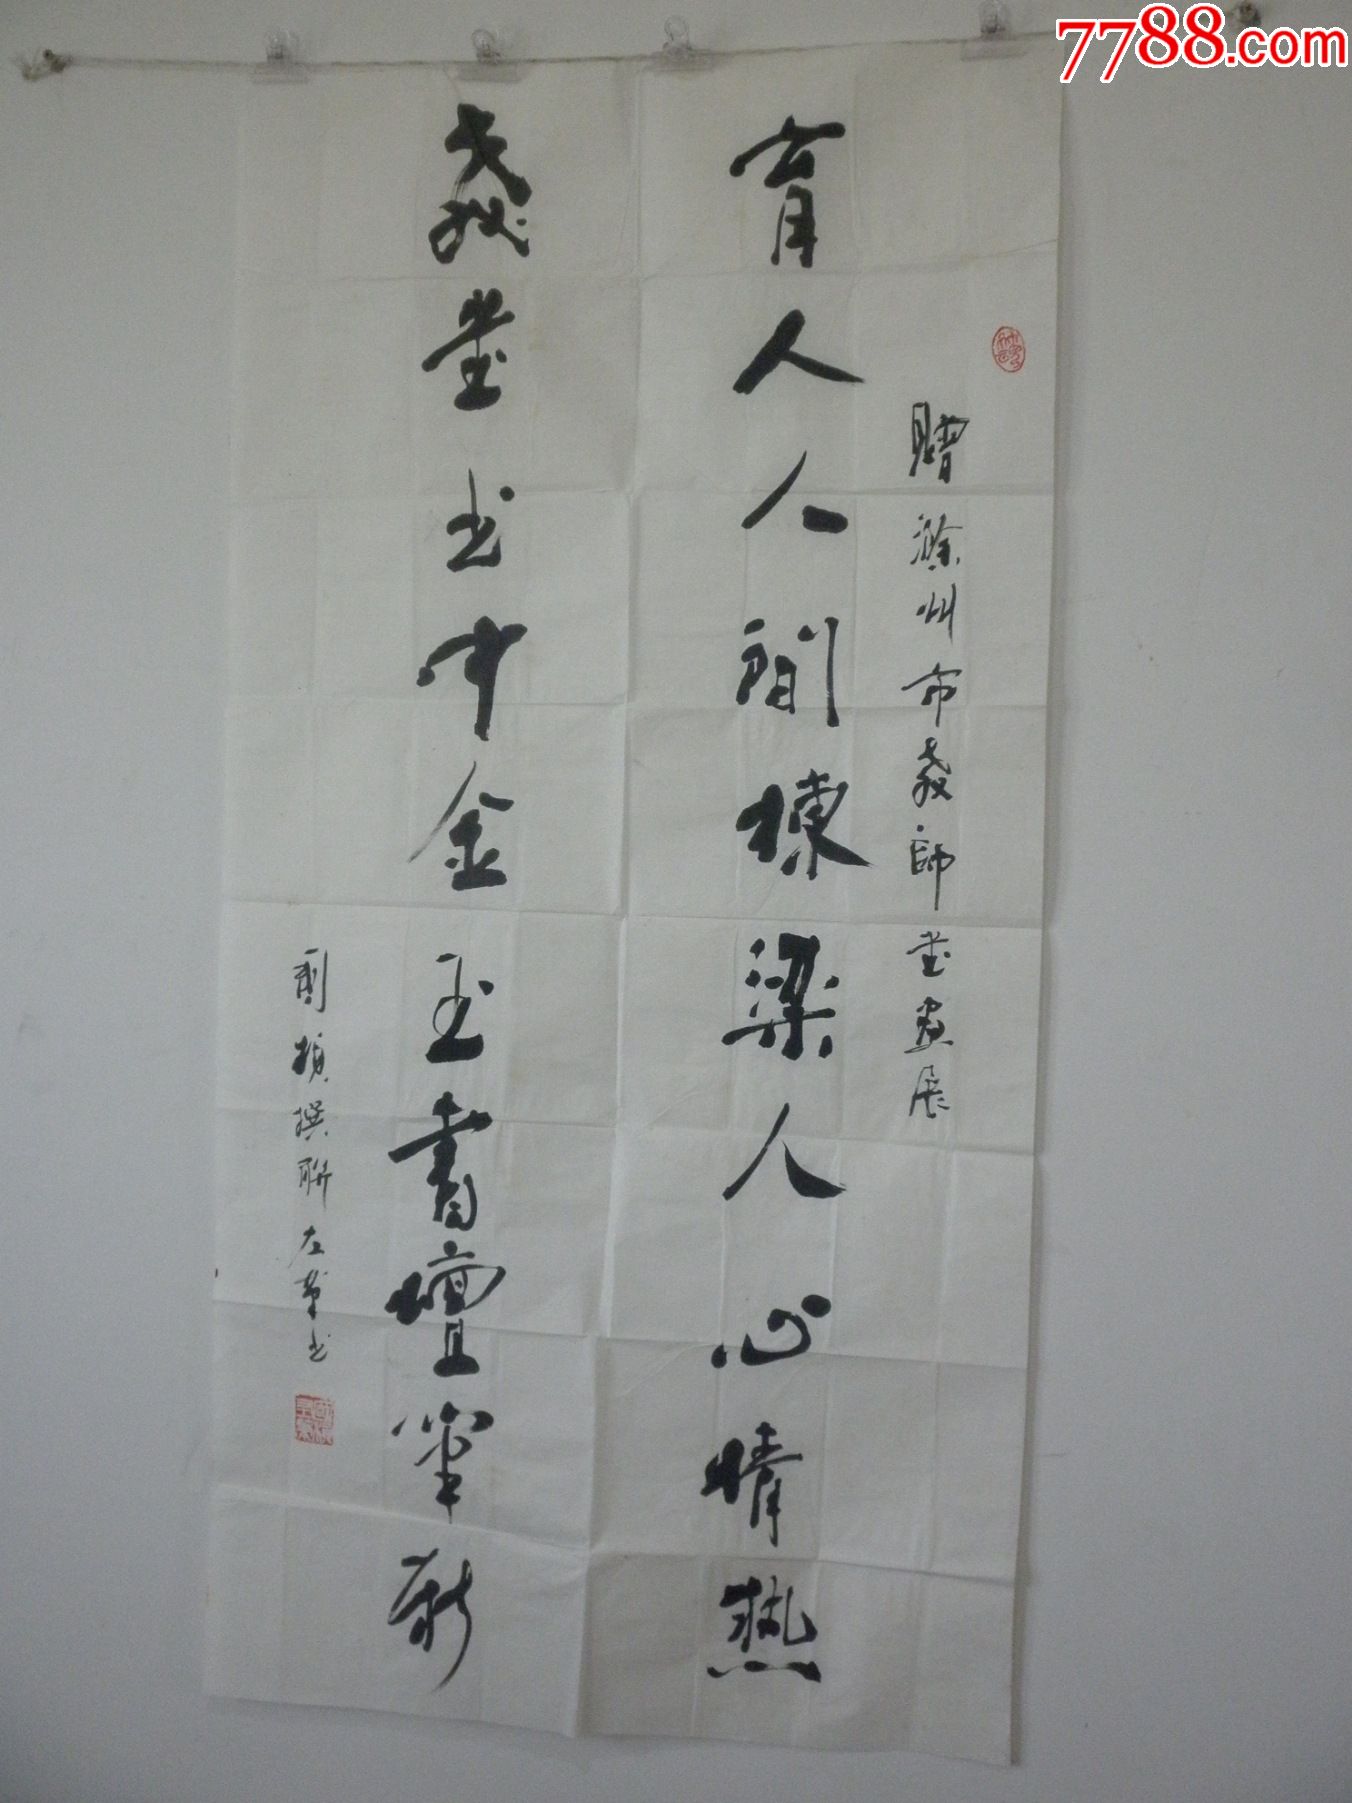 贈滁州市教師書畫展
育人人間棟梁人心情热
教書书中金玉書壇筆新
撰聯左筆书
7788.com